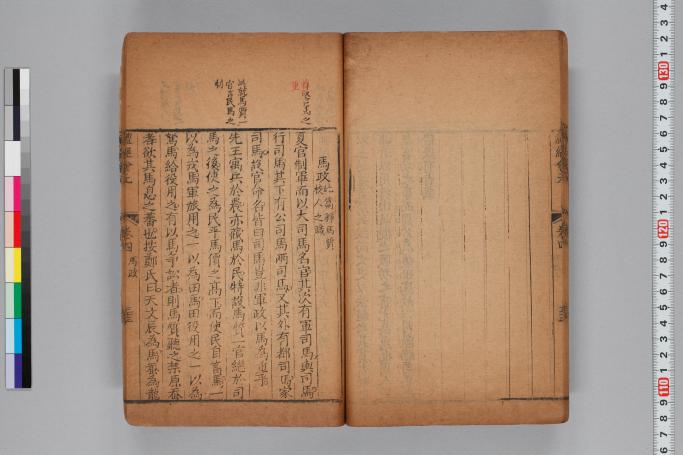 馬政 此篇兼馬質校人之職
夏官制軍而以大司馬名官其次有軍司馬輿司馬
行司馬其下有公司馬兩司馬又其外有都司馬家
司馬故官命名皆曰司馬豈非軍政以馬為重乎
先王寓兵於農亦藏馬於民特設馬質一官總於司
馬之後使之為民平馬價之高下而使民自畜馬一
以為戎馬軍旅用之一以為田馬田役用之一以為
駑馬給役用之有以馬爭訟者則馬質聽之禁原蠶
者欲其馬息之蕃也按鄭氏曰天文辰為馬蠶為龍
禮經會元
卷四 馬政
此就馬質一
官言民馬之
制